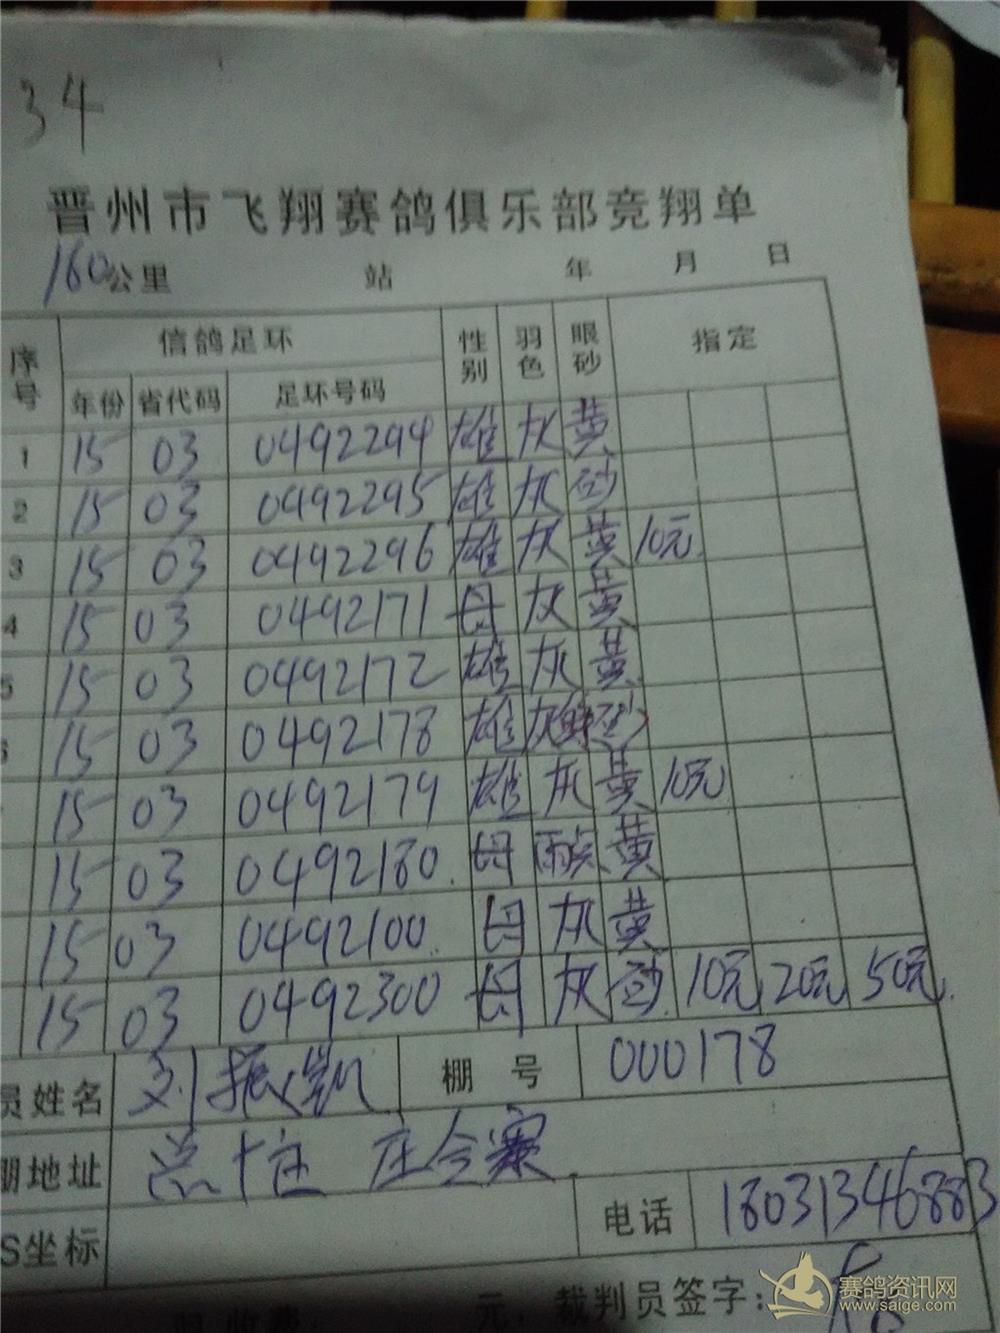 34
晋州市飞翔赛鸽俱乐部竞翔单
160公里 站 年 月 日
序号 信鸽足环 性别 羽色 眼砂 指定
年份 省代码 足环号码
1 15 03 0492294 雄 灰 黄
2 15 03 0492295 雄 灰 砂
3 15 03 0492296 雄 灰 黄 10元
4 15 03 0492171 母 灰 黄
5 15 03 0492172 雄 灰 黄
15 03 0492178 雄 灰 砂
15 03 0492179 雄 灰 黄 10元
15 03 0492180 母 雨点 黄
15 03 0492100 母 灰 黄
15 03 0492300 母 灰 砂 10元 20元 50元
员姓名 刘振凯 棚号 000178
棚地址 总十庄
S坐标 电话 18031346883
收费: 元; 裁判员签字:
赛鸽资讯网
www.saige.com